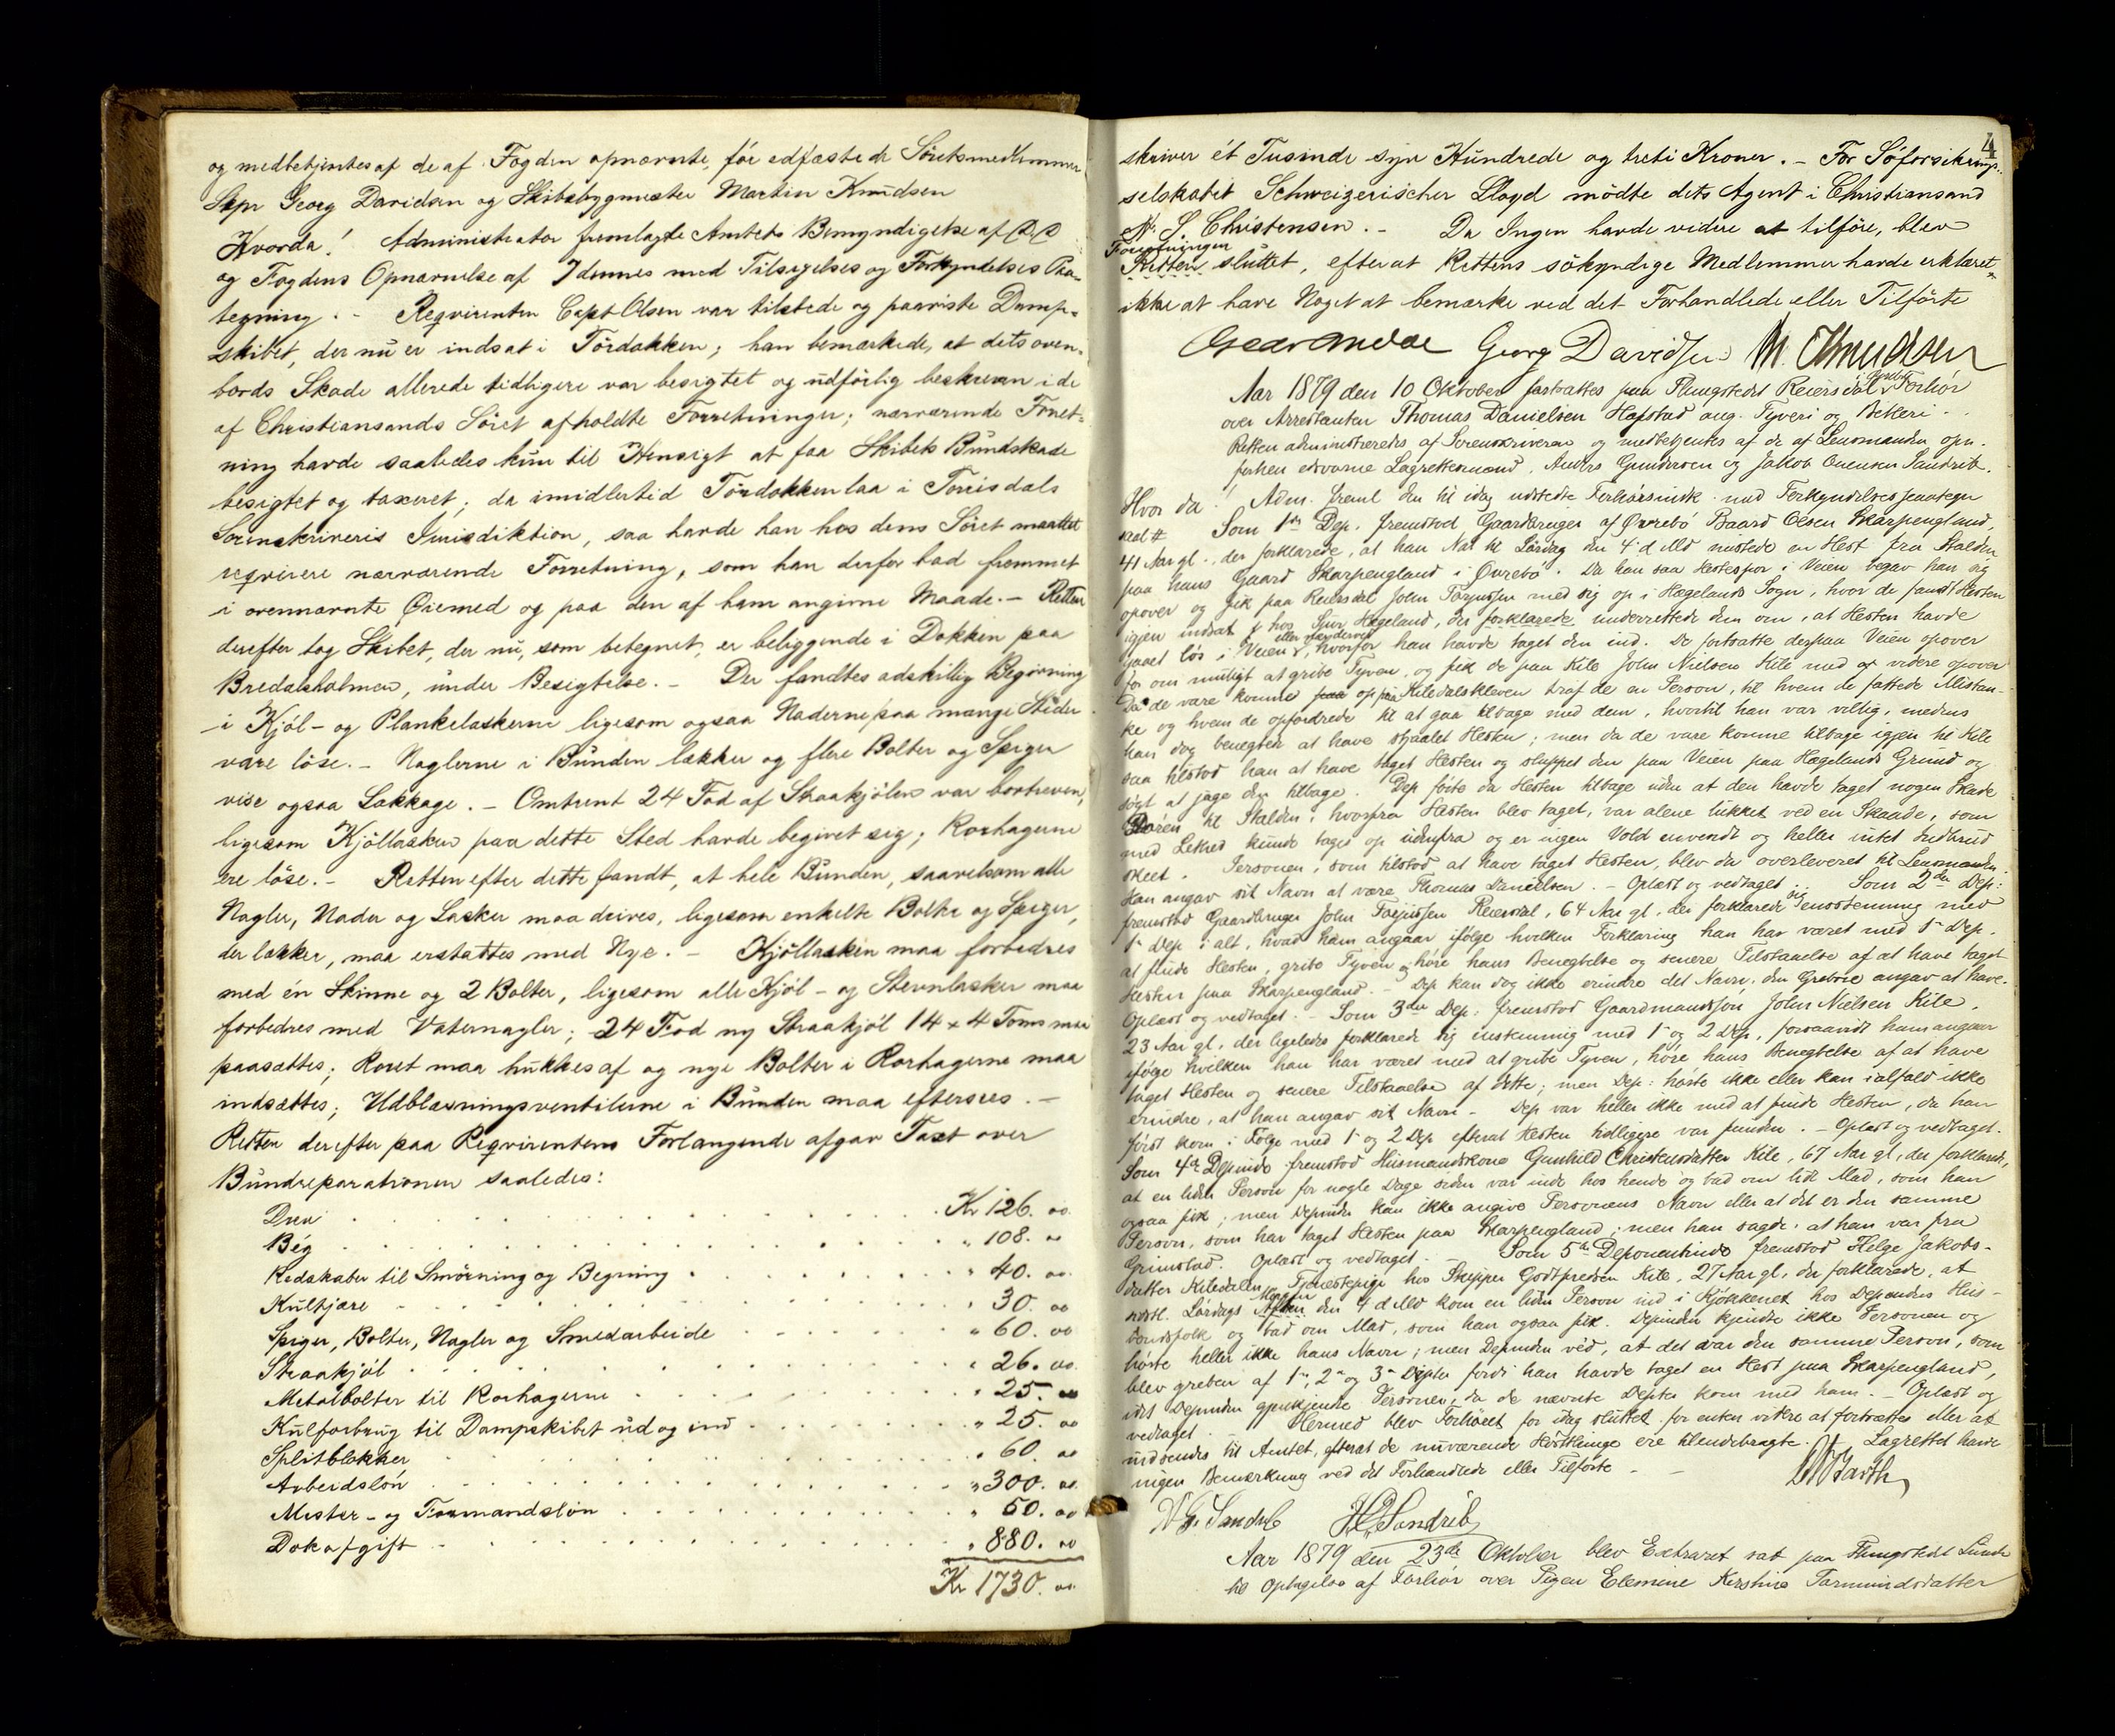 og medbetjentes af de af Fogden opnævnte, før edfæstede Söretsmedlemmer
Skpr Georg Davidsen og Skibsbygmester Martin Knudsen
Hvorda! Administrator fremlagte Amtets Bemyndigelse af
og Fogdens Opnævnelse af 7 dennes med Tilsigelses og Forkyndelses Paa-
tegning. - Reqvirenten Capt Olsen var tilstede og paaviste Damp-
skibet, der nu er indsat i Tördokken; han bemærkede, at dets oven-
bords Skade allerede tidligere var besigtet og udförlig beskreven i de
af Christiansands Söret afholdte Forretninger; nærværende Forret-
ning havde saaledes kun til Hensigt at faa Skibets Bundskade
besigtet og taxeret; da imidlertid Tördokken laa i Torrisdals
Sorenskriveris Jurisdiktion, saa havde han hos dens Söret maattet
reqvirere nærværende Forretning, som han derfor bad fremmet
i ovennævnte Øiemed og paa den af ham angivne Maade. - Retten
derefter tog Skibet, der nu, som betegnet, er beliggende i Dokken paa
Bredalsholmen, under Besigtelse. - Der fandtes adskillig Begivning
i Kjöl- og Plankelaskerne ligesom ogsaa Naderne paa mange Steder
vare löse. - Naglerne i Bunden lækker og flere Bolter og Spiger
vise ogsaa Lækkage. - Omtrent 24 Fod af Straakjölen var bortreven,
ligesom Kjöllasken paa dette Sted havde begivet sig; Rorhagerne
ere löse. - Retten efter dette fandt, at hele Bunden, saavelsom alle
Nagler, Nader og Lasker maa drives, ligesom enkelte Bolte og Spiger,
der lækker, maa erstattes med Nye. - Kjöllasken maa forbedres
med én Skinne og 2 Bolter, ligesom alle Kjöl- og Stevnlasker maa
forbedres med Vaternagler; 24 Fod ny Straakjöl 14 x 4 Toms maa
paasættes; Roret maa hukkes af og nye Bolter i Rorhagerne maa
indsættes; Udblæsningsventilerne i Bunden maa eftersees. -
Retten derefter paa Reqvirentens Forlangende afgav Taxt over
Bundreparationen saaledes:
Drev Kr 126. 00
Beg " 108. 00
Redskaber til Smörning og Begning " 40. 00
Kultjære " 30. 00
Spiger, Bolter, Nagler og Smedarbeide " 60. 00
Straakjöl " 26. 00
Metalbolter til Rorhagerne " 25. 00
Kulforbrug til Dampskibet ud og ind " 25. 00
Splitblokker " 60. 00
Arbeidslön " 300. 00
Mester- og Formandslön " 50. 00
Dokafgift " 880. 00
Kr 1730. 00
4
skriver ét Tusinde syv Hundrede og treti Kroner. - For Söforsikrings-
selskabet Schweizerischer Lloyd mödte dets Agent i Christiansand
N. S. Christensen. - Da Ingen havde videre at tilföre, blev
Forretningen
Retten sluttet, efterat Rettens sökyndige Medlemmer havde erklæret
ikke at have Noget at bemærke ved det Forhandlede eller Tilförte
Georg Davidsen M. Knudsen
Aar 1879 den 10 Oktober fortsattes paa Thingstedet Reiersdal Forhör
over Arrestanten Thomas Danielsen Hafstad ang. Tyveri og Betleri.
Retten administreredes af Sorenskriveren og medbetjentes af de af Lensmanden opn.
forhen edsvorne Lagrettesmænd, Anders Gundersen og Jakob Sandrib.
Hvor da! Adm. freml. den til idag udstedte Forhörsindk. med Forkyndelsespaategn
saal # Som 1ste Dep. fremstod Gaardbruger af Øvrebö Baard Olsen Skarpengland,
41 Aar gl., der forklarede, at han Nat til Lördag den 4 d Md mistede en Hest fra Stalden
paa hans Gaard Skarpengland i Øvrebö. Da han saa Hestespor i Veien begav han sig
opover og fik paa Reiersdal John Torjussen med sig op i Hægelands Sogn, hvor de fandt Hesten
igjen indsat hos Hægeland, der forklarede underrettede dem om, at Hesten havde
gaaet lös i Veien, hvorfor han havde taget den ind. De fortsatte derpaa Veien opover
for om muligt at gribe Tyven, og fik de paa Kile John Nielsen Kile med videre opover
Da de vare komne op paa Kiledalskleven traf de en Person, til hvem de fattede Mistan-
ke og hvem de opfordrede til at gaa tilbage med dem, hvortil han var villig, medens
han dog benegtede at have stjaalet Hesten; men da de vare komne tilbage igjen til Kile
saa tilstod han at have taget Hesten og sluppet den paa Veien paa Hægelands Grund og
sögt at jage den tilbage. Dep förte da Hesten tilbage uden at den havde taget nogen Skade
Dören til Stalden, hvorfra Hesten blev taget, var alene lukket ved en Skaade, som
med Lethed kunde tages op udenfra og er ingen Vold anvendt og heller intet Indbrud
skeet. Personen, som tilstod at have taget Hesten, blev da overleveret til Lensmanden.
Han angav sit Navn at være Thomas Danielsen. - Oplæst og vedtaget. Som 2den Dep:
fremstod Gaardbruger John Torjussen Reiersdal, 64 Aar gl, der forklarede sig enstemmig med
1ste Dep i alt, hvad ham angaar ifölge hvilken Forklaring han har været med 1ste Dep.
at finde Hesten, gribe Tyven og höre hans Benegtelse og senere Tilstaaelse af at have taget
Hesten paa Skarpengland. - Dep kan dog ikke erindre det Navn, den Grebne angav at have.
Oplæst og vedtaget. - Som 3die Dep: fremstod Gaardmandssön John Nielsen Kile,
23 Aar gl, der ligeledes forklarede sig enstemmig med 1ste og 2 Dep, forsaavidt ham angaar
ifölge hvilken han har været med at gribe Tyven, höre hans Benegtelse af at have
taget Hesten og senere Tilstaaelse af dette; men Dep: hörte ikke eller kan ialfald ikke
erindre, at han angav sit Navn - Dep var heller ikke med at finde Hesten, da han
först kom i Fölge med 1ste og 2 Dep efterat Hesten tidligere var funden. - Oplæst og vedtaget.
Som 4de Depinde fremstod Husmandskone Gunhild Christensdatter Kile, 67 Aar gl, der forklarede,
at en liden Person for nogle Dage siden var inde hos hende og bad om lidt Mad, som han
ogsaa fik; men Depinden kan ikke angive Personens Navn eller at det er den samme
Person, som har taget Hesten paa Skarpengland; men han sagde, at han var fra
Grimstad. Oplæst og vedtaget. - Som 5te Deponentinde fremstod Helge Jakobs-
datter Kiledalen, Tjenestepige hos Skipper Godtfredsen Kile, 27 Aar gl, der forklarede, at
sidstl. Lördags Morgen den 4 d Md kom en liden Person ind i Kjökkenet hos Depindens Hus-
bondsfolk og bad om Mad, som han ogsaa fik. Depinden kjendte ikke Personen og
hörte heller ikke hans Navn; men Depinden ved, at det var den samme Person, som
blev greben af 1ste, 2 og 3 Dep fordi han havde taget en Hest paa Skarpengland,
idet Depinden gjenkjendte Personen, da de nævnte Dep kom med ham. - Oplæst og
vedtaget. - Hermed blev Forhöret for idag sluttet for enten videre at fortsættes eller at
indsendes til Amtet, efterat de nuværende ere tilendebragte. Lagrettet havde
ingen Bemærkning ved det Forhandlede eller Tilförte -
A. G. Sandrib Sandrib
Aar 1879 den 23de Oktober blev Extraret sat paa Thingstedet Lunde
til Optagelse af Forhör over Pigen Elemine Kirstine Tormundsdatter